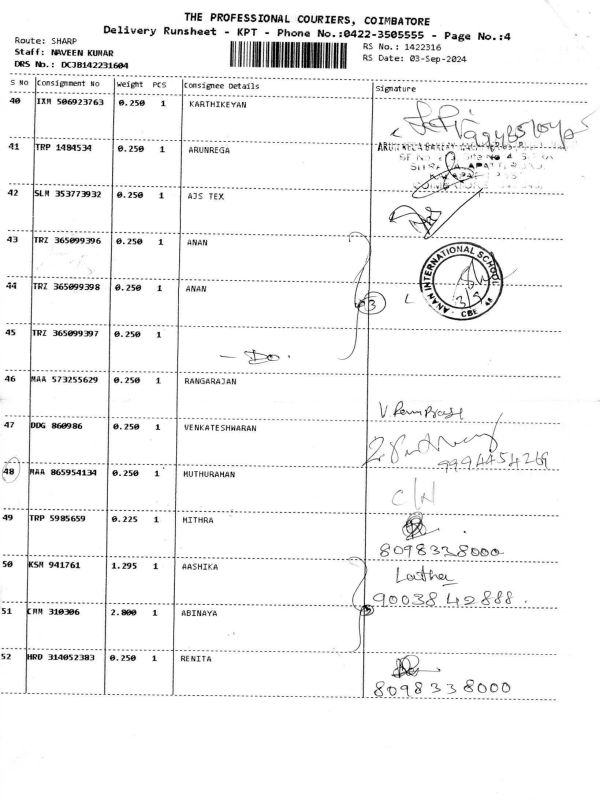 THE PROFESSIONAL COURIERS, COIMBATORE
Delivery Runsheet - KPT - Phone No.:0422-3505555 - Page No.:4
Route: SHARP
RS No.: 1422316
Staff: NAVEEN KUMAR
RS Date: 03-Sep-2024
DRS No.: DCJB142231604
S No Consignment No Weight PCS Consignee Details Signature
40 IXM 506923763 0.250 1 KARTHIKEYAN
41 TRP 1484534 0.250 1 ARUNREGA
42 SLM 353773932 0.250 1 AJS TEX
43 TRZ 365099396 0.250 1 ANAN
ANAN INTERNATIONAL SCHOOL
CBE
3/9
44 TRZ 365099398 0.250 1 ANAN
3
45 TRZ 365099397 0.250 1
- Do.
46 MAA 573255629 0.250 1 RANGARAJAN
47 DDG 860986 0.250 1 VENKATESHWARAN
9994454269
48 MAA 865954134 0.250 1 MUTHURAMAN
49 TRP 5985659 0.225 1 MITHRA
8098338000
50 KSM 941761 1.295 1 AASHIKA
Latha
9003842888.
51 CMM 310306 2.800 1 ABINAYA
52 HRD 314052383 0.250 1 RENITA
8098338000